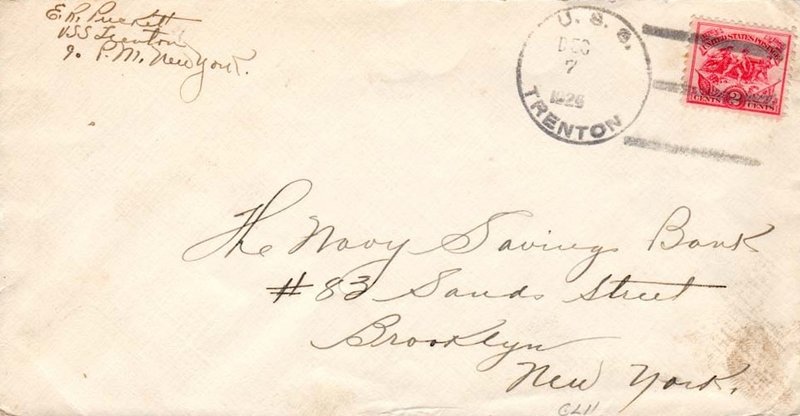 E. R. Puckett
USS Trenton
% P.M. New York.
U. S. S.
DEC
7
1926
TRENTON
UNITED STATES POSTAGE
CENTS 2 CENTS
The Navy Savings Bank
# 83 Sands Street
Brooklyn
New York.